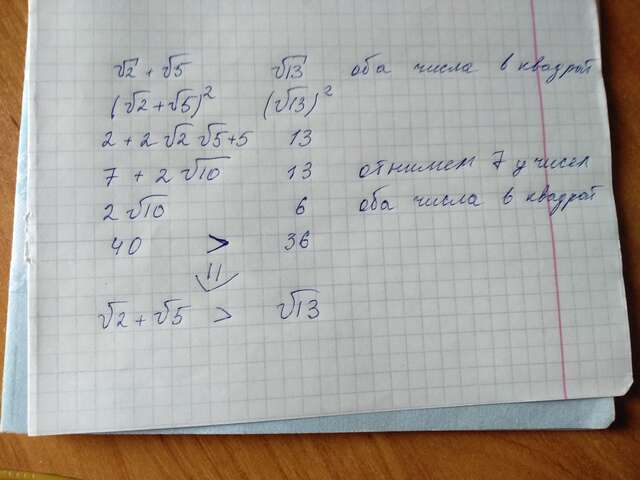 √2 + √5 √13 оба числа в квадрат
(√2 + √5)² (√13)²
2 + 2√2 √5 + 5 13
7 + 2√10 13 отнимем 7 у чисел
2√10 6 оба числа в квадрат
40 > 36
⇓
√2 + √5 > √13